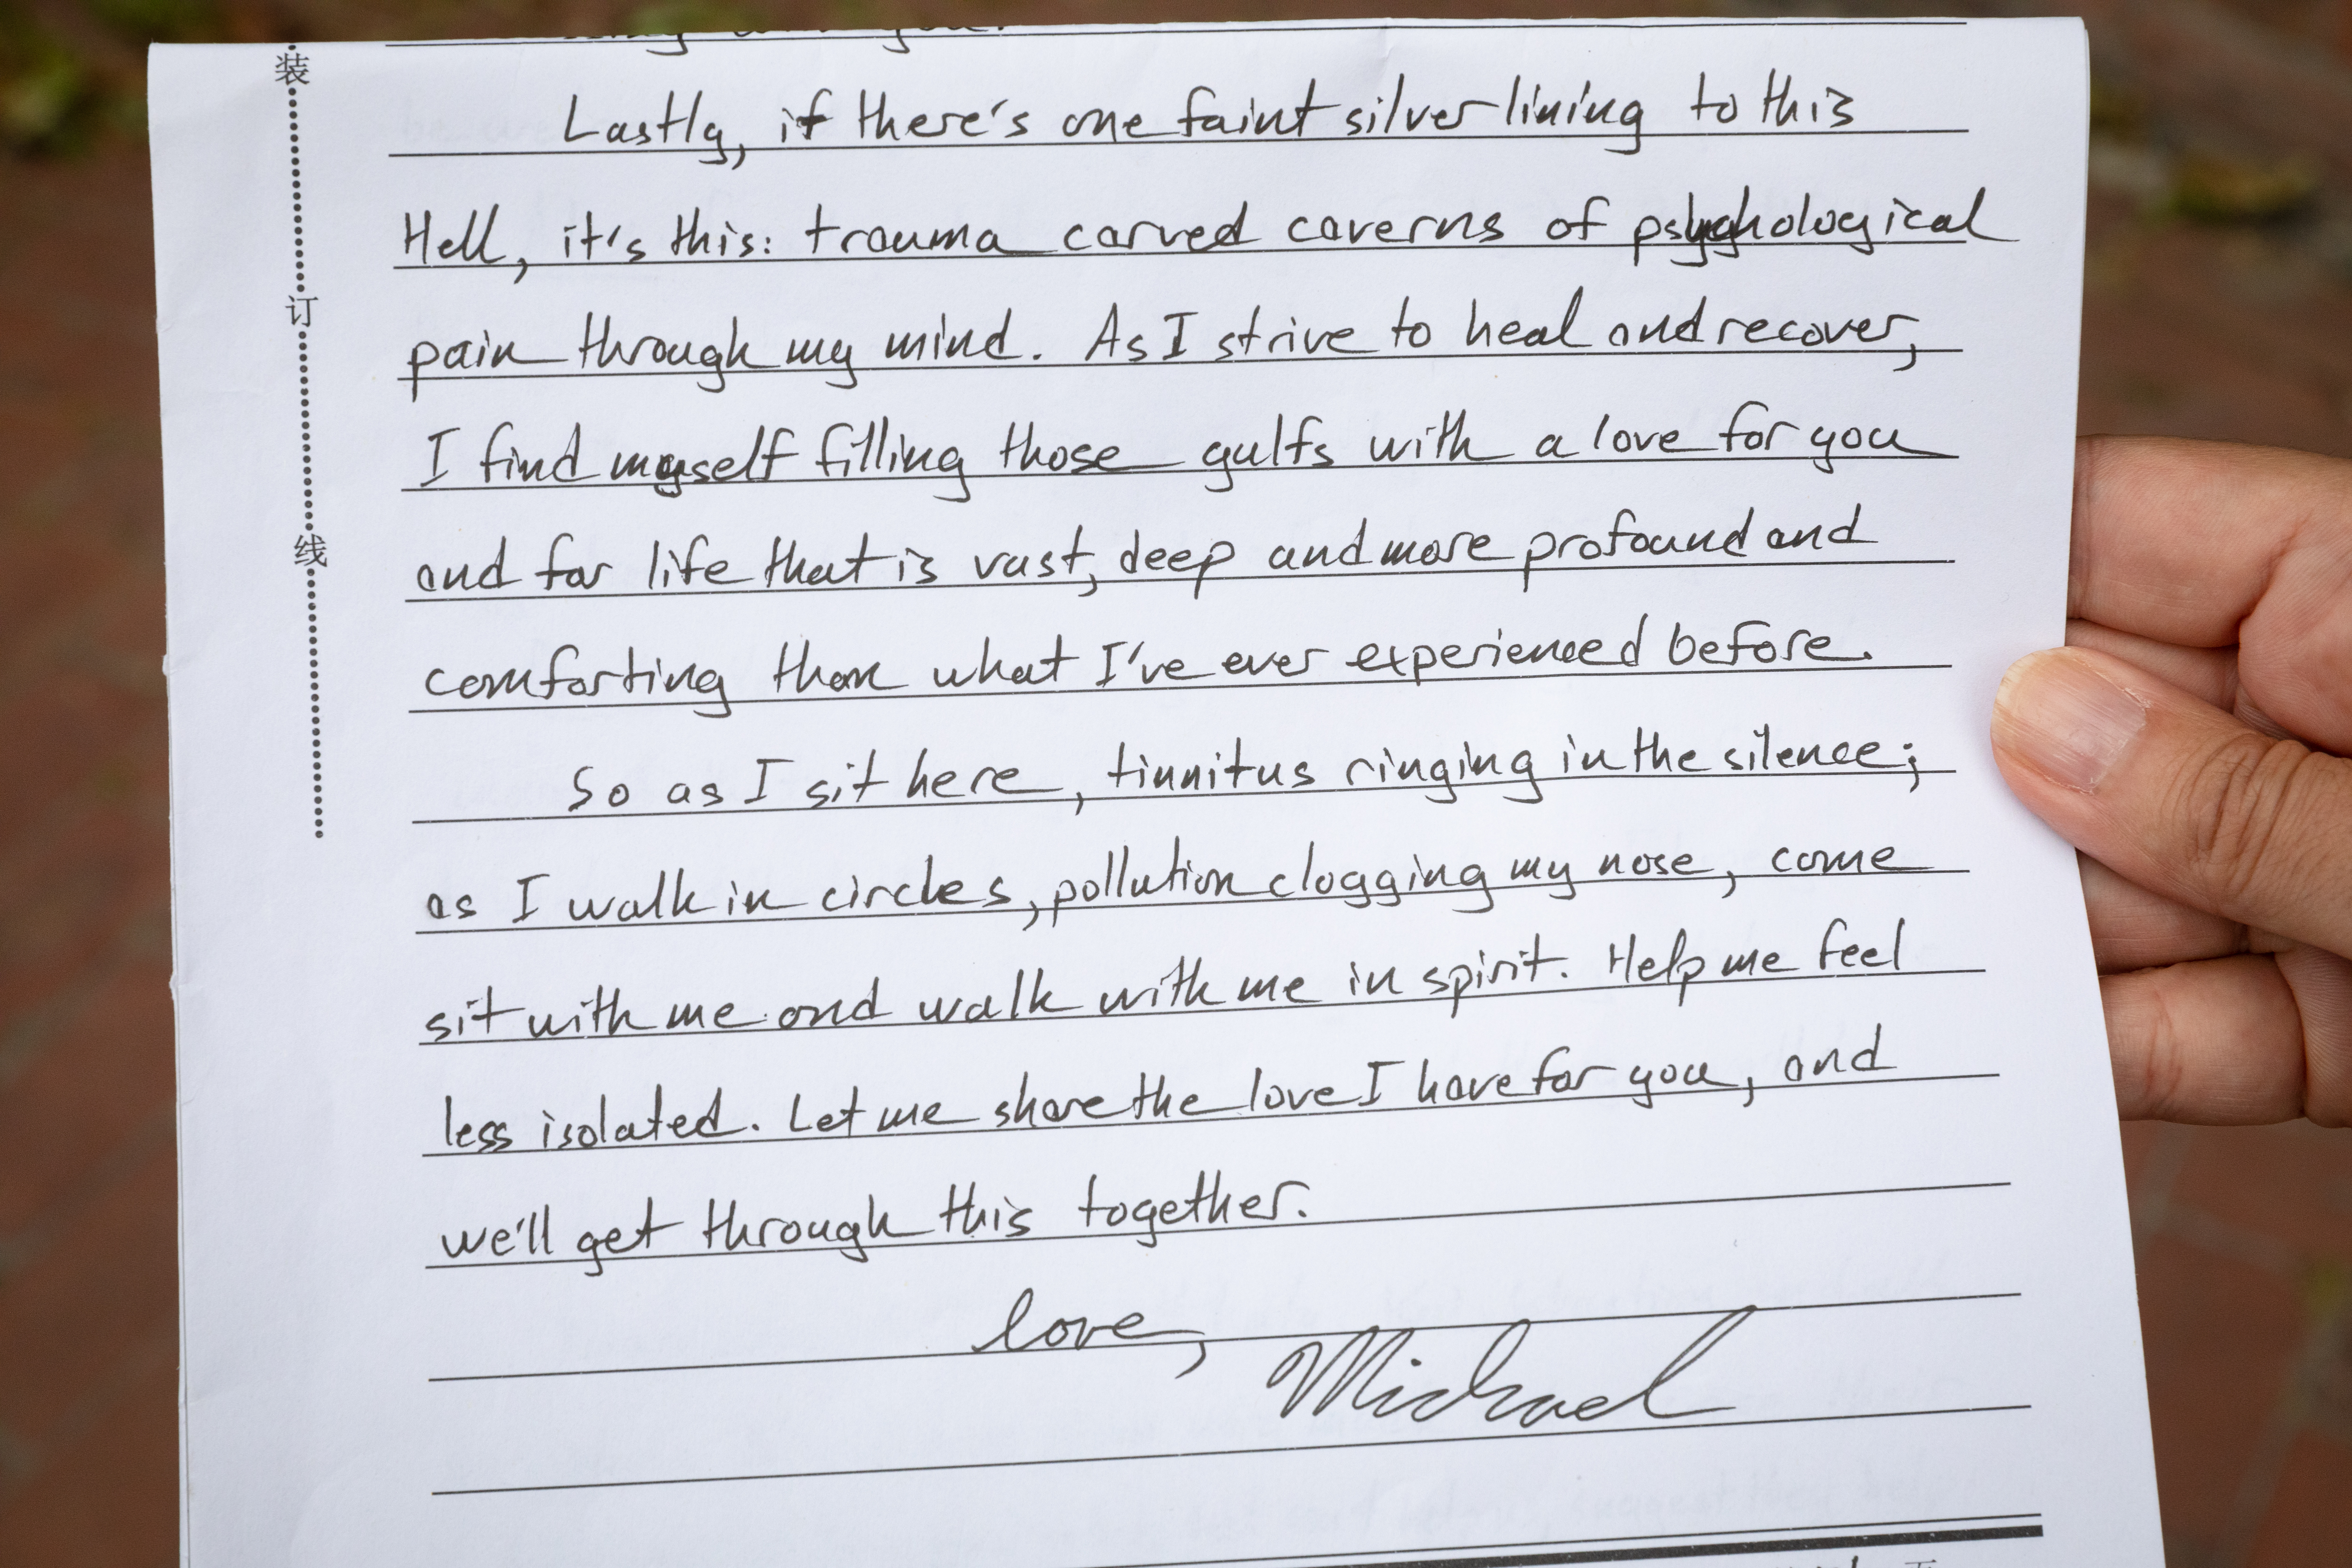 you.
Lastly, if there's one faint silver lining to this
Hell, it's this: trauma carved caverns of psychological
pain through my mind. As I strive to heal and recover,
I find myself filling those gulfs with a love for you
and for life that is vast, deep and more profound and
comforting than what I've ever experienced before.
So as I sit here, tinnitus ringing in the silence;
as I walk in circles, pollution clogging my nose, come
sit with me and walk with me in spirit. Help me feel
less isolated. Let me share the love I have for you, and
we'll get through this together.
love,
Michael
装
订
线